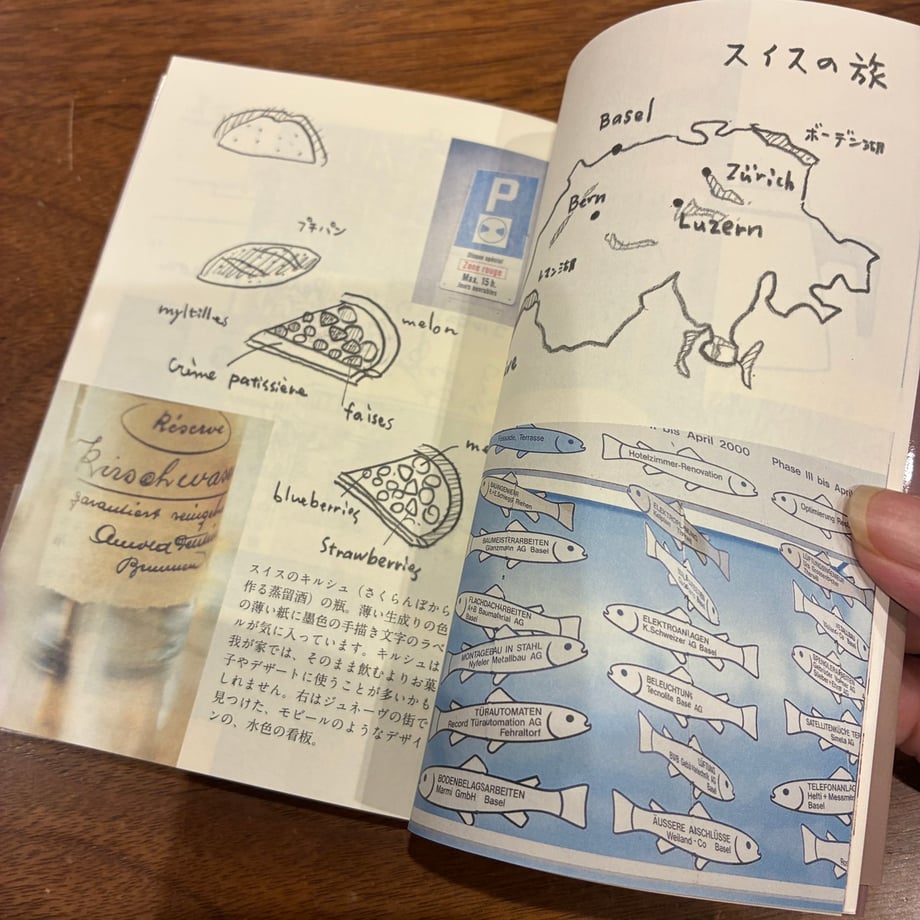 プチパン
myltilles
melon
Crème patissière
faises
blueberries
Strawberries
P
Disque spécial
Zone rouge
Max. 15 h.
Jours ouvrables
Réserve
Kirschwass
garantiert
Arnold
スイスのキルシュ（さくらんぼから
作る蒸留酒）の瓶。薄い生成りの色
の薄い紙に墨色の手描き文字のラベ
ルが気に入っています。キルシュは
我が家では、そのまま飲むよりお菓
子やデザートに使うことが多いかも
しれません。右はジュネーヴの街で
見つけた、モビールのようなデザイ
ンの、水色の看板。
スイスの旅
Basel
ボーデン湖
Zürich
Bern
Luzern
レマン湖
bis April 2000
Phase III bis April
Fassade, Terrasse
Hotelzimmer-Renovation
Optimierung
BAUINGENIEUR
BAUMEISTERARBEITEN
Glanzmann AG Basel
FLACHDACHARBEITEN
A+B Baumaterial AG
Basel
MONTAGEBAU IN STAHL
Nyfeler Metallbau AG
TÜRAUTOMATEN
Record Türautomation AG
Fehraltorf
BODENBELAGSARBEITEN
Marmi GmbH Basel
ELEKTROANLAGEN
K.Schweizer AG Basel
BELEUCHTUNG
Tecnolite Base AG
LÜFTUNG
ÄUSSERE ANSCHLÜSSE
Weiland-Co Basel
SATELLITENKÜCHE
TELEFONANLAG
Basel